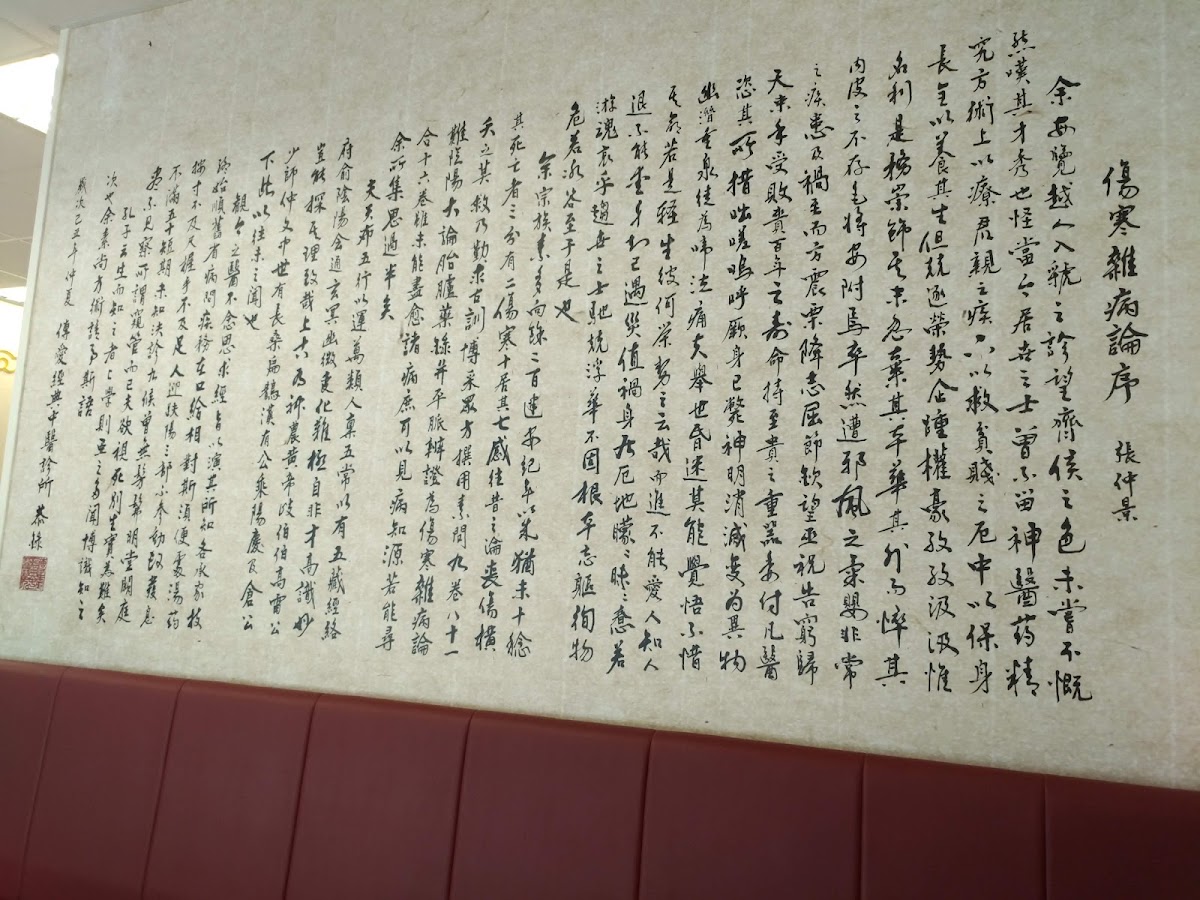 傷寒雜病論序 張仲景
余每覽越人入虢之診望齊侯之色未嘗不慨
然嘆其才秀也怪當今居世之士曾不留神醫药精
究方術上以療君親之疾下以救貧賤之厄中以保身
長全以養其生但競逐榮勢企踵權豪孜孜汲汲惟
名利是務崇飾其末忽棄其本華其外而悴其
內皮之不存毛將安附焉卒然遭邪風之氣嬰非常
之疾患及禍至而方震栗降志屈節欽望巫祝告窮歸
天束手受敗賚百年之壽命持至貴之重器委付凡醫
恣其所措咄嗟嗚呼厥身已斃神明消滅變為異物
幽潛重泉徒為啼泣痛夫舉世昏迷莫能覺悟不惜
其命若是輕生彼何榮勢之云哉而進不能愛人知人
退不能愛身知己遇災值禍身居厄地矇矇昧昧惷若
游魂哀乎趨世之士馳競浮華不固根本忘軀徇物
危若冰谷至于是也
余宗族素多向餘二百建安紀年以來猶未十稔
其死亡者三分有二傷寒十居其七感往昔之淪喪傷橫
夭之莫救乃勤求古訓博采眾方撰用素問九卷八十一
難陰陽大論胎臚藥錄并平脈辨證為傷寒雜病論
合十六卷雖未能盡愈諸病庶可以見病知源若能尋
余所集思過半矣
夫天布五行以運萬類人稟五常以有五藏經絡
府俞陰陽會通玄冥幽微變化難極自非才高識妙
豈能探其理致哉上古有神農黃帝岐伯伯高雷公
少師仲文中世有長桑扁鵲漢有公乘陽慶及倉公
下此以往未之聞也
觀今之醫不念思求經旨以演其所知各承家技
終始順舊省病問疾務在口給相對斯須便處湯药
按寸不及尺握手不及足人迎趺陽三部不參動數發息
不滿五十短期未知決診九候曾無髣髴明堂闕庭
盡不見察所謂窺管而已夫欲視死別生實為難矣
孔子云生而知之者上學則亞之多聞博識知之
次也余素尚方術請事斯語
歲次己丑年仲夏 傳愛經典中醫診所 恭錄